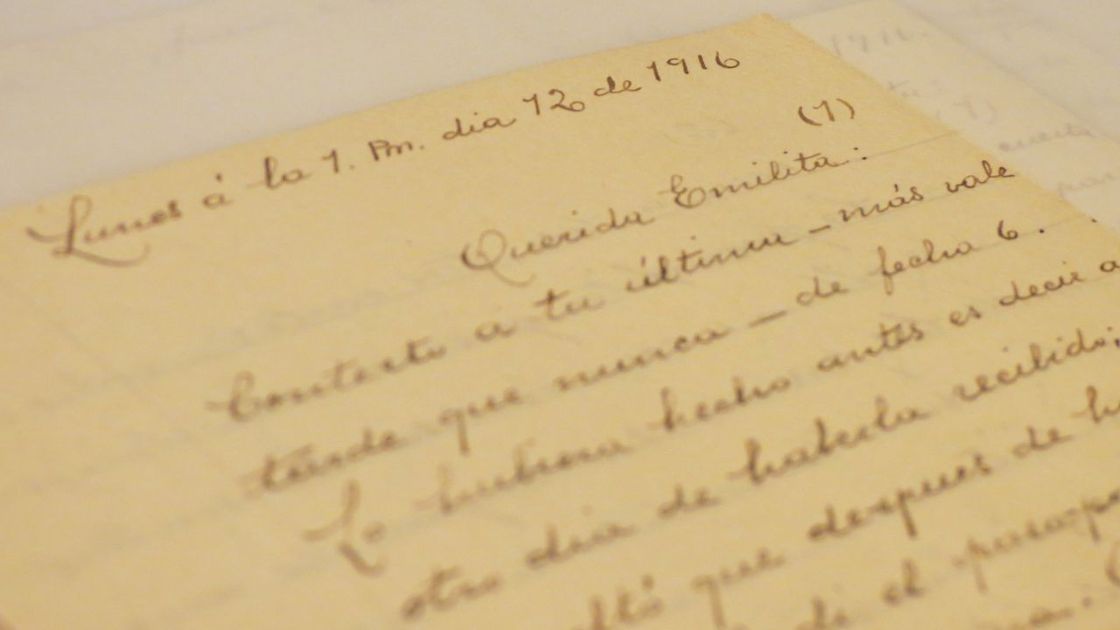 Lunes á la 1. Pm. dia 12 de 1916
(1)
Querida Emilita:
Contesto a tu última - más vale
tarde que nunca - de fecha 6.
Lo hubiera hecho antes es decir a
otro dia de haberla recibido,
que despues de
el